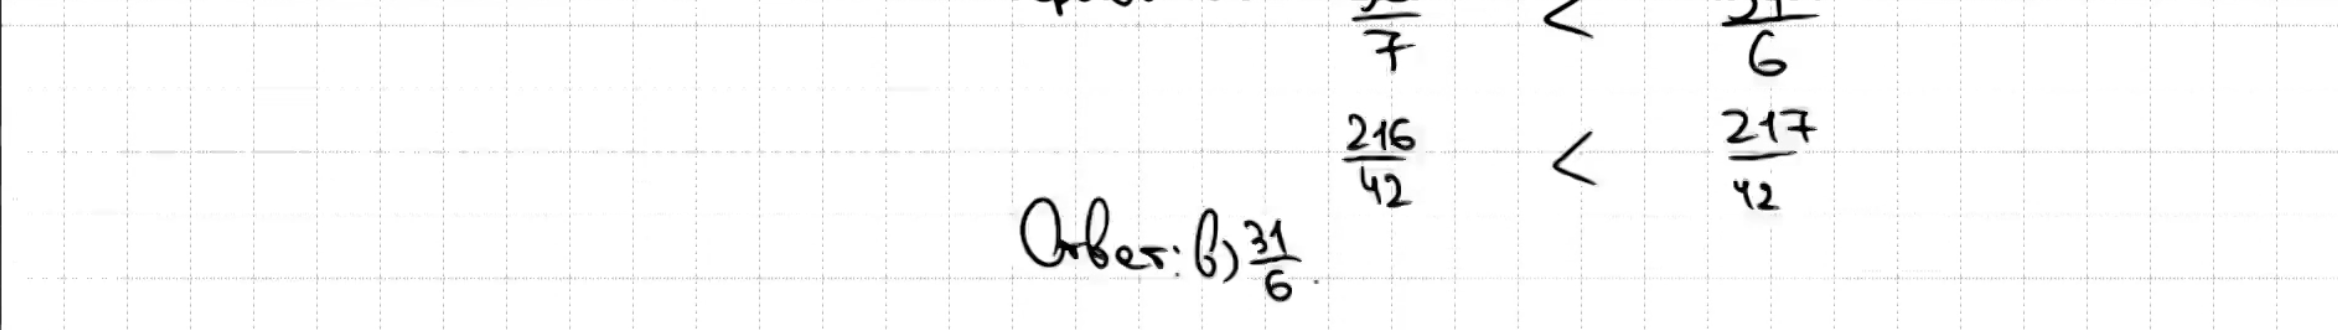 7 < 6
216/42 < 217/42
Ответ: в) 31/6.